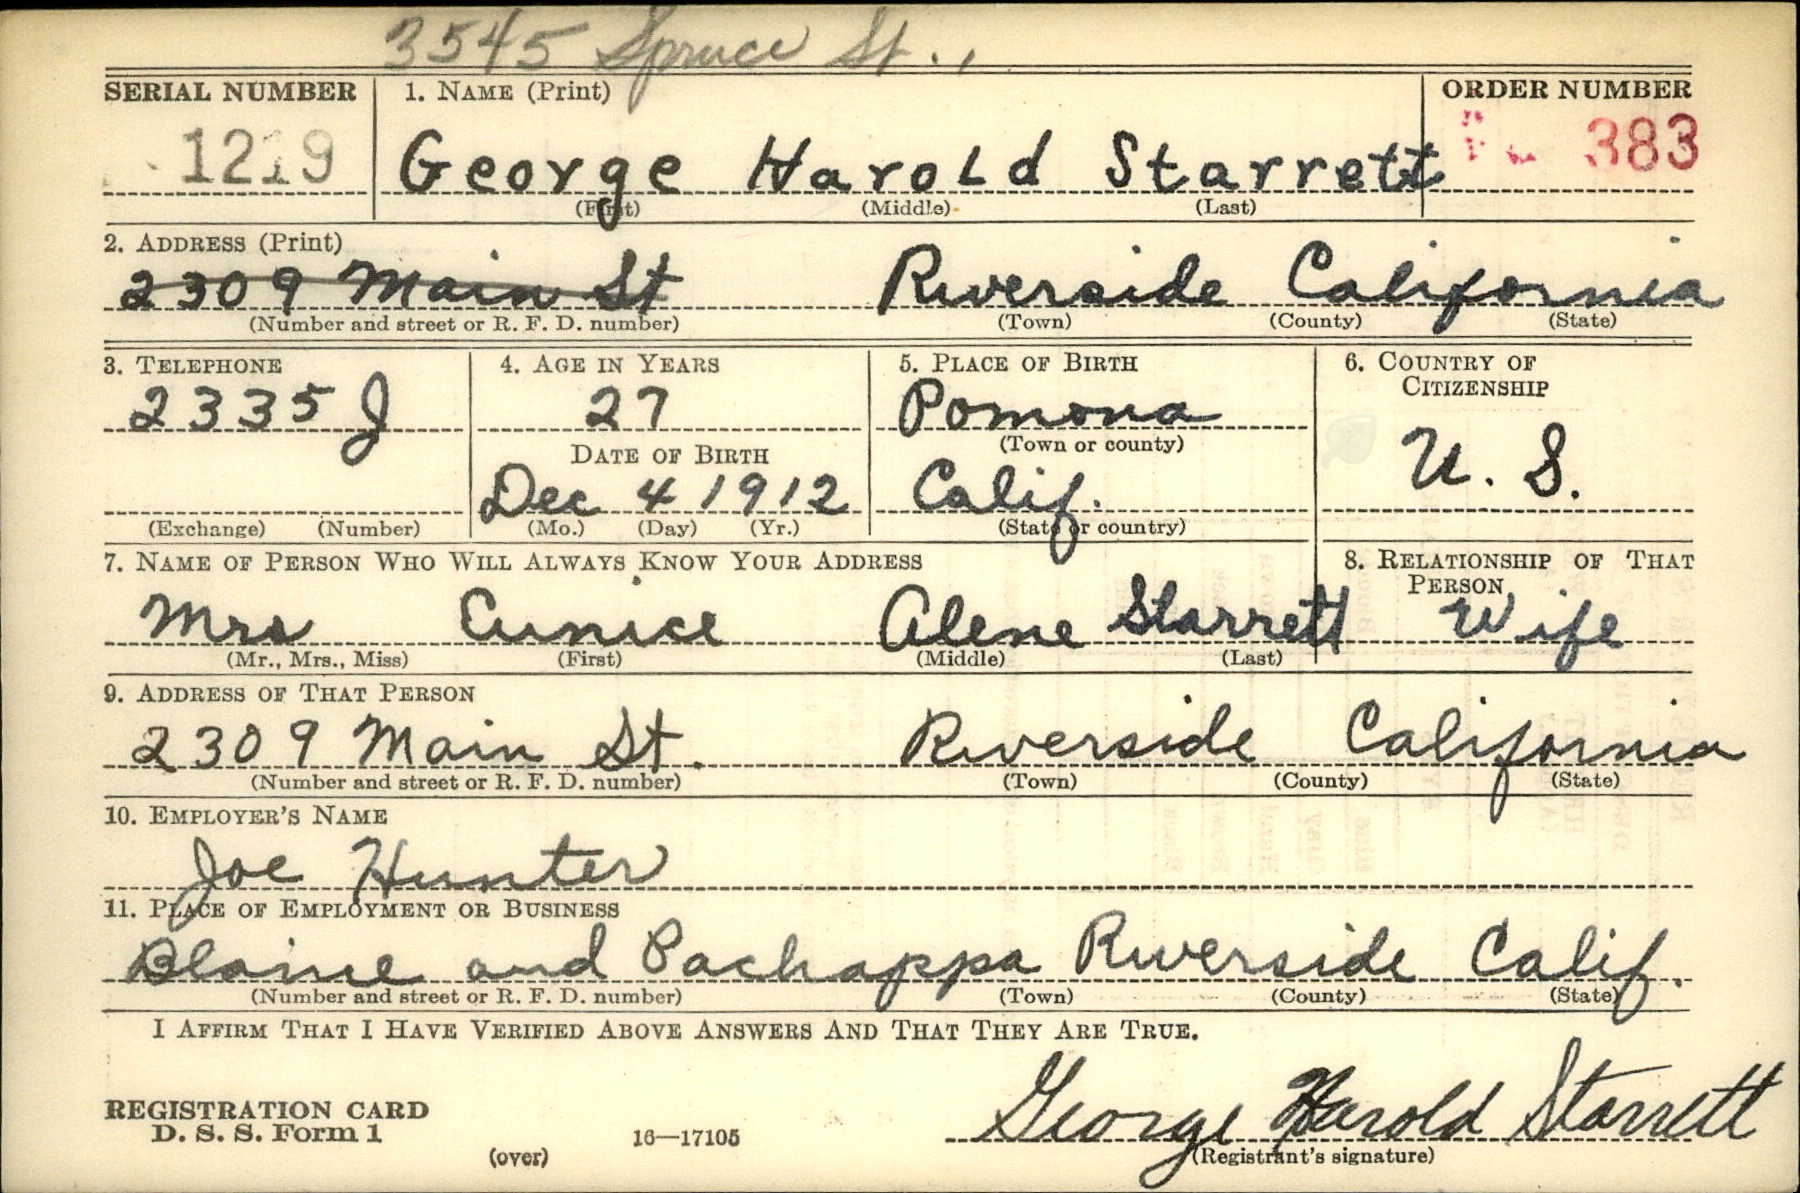 3545 Spruce St.,
SERIAL NUMBER 1. NAME (Print) ORDER NUMBER
1219 George Harold Starrett 383
(First) (Middle) (Last)
2. ADDRESS (Print)
2309 Main St Riverside California
(Number and street or R. F. D. number) (Town) (County) (State)
3. TELEPHONE 4. AGE IN YEARS 5. PLACE OF BIRTH 6. COUNTRY OF
CITIZENSHIP
2335 J 27 Pomona
(Town or county)
DATE OF BIRTH U. S.
Dec 4 1912 Calif.
(Exchange) (Number) (Mo.) (Day) (Yr.) (State or country)
7. NAME OF PERSON WHO WILL ALWAYS KNOW YOUR ADDRESS 8. RELATIONSHIP OF THAT
PERSON
Mrs Eunice Alene Starrett Wife
(Mr., Mrs., Miss) (First) (Middle) (Last)
9. ADDRESS OF THAT PERSON
2309 Main St. Riverside California
(Number and street or R. F. D. number) (Town) (County) (State)
10. EMPLOYER'S NAME
Joe Hunter
11. PLACE OF EMPLOYMENT OR BUSINESS
Blaine and Pachappa Riverside Calif.
(Number and street or R. F. D. number) (Town) (County) (State)
I AFFIRM THAT I HAVE VERIFIED ABOVE ANSWERS AND THAT THEY ARE TRUE.
George Harold Starrett
REGISTRATION CARD
D. S. S. Form 1 16—17105
(over) (Registrant's signature)